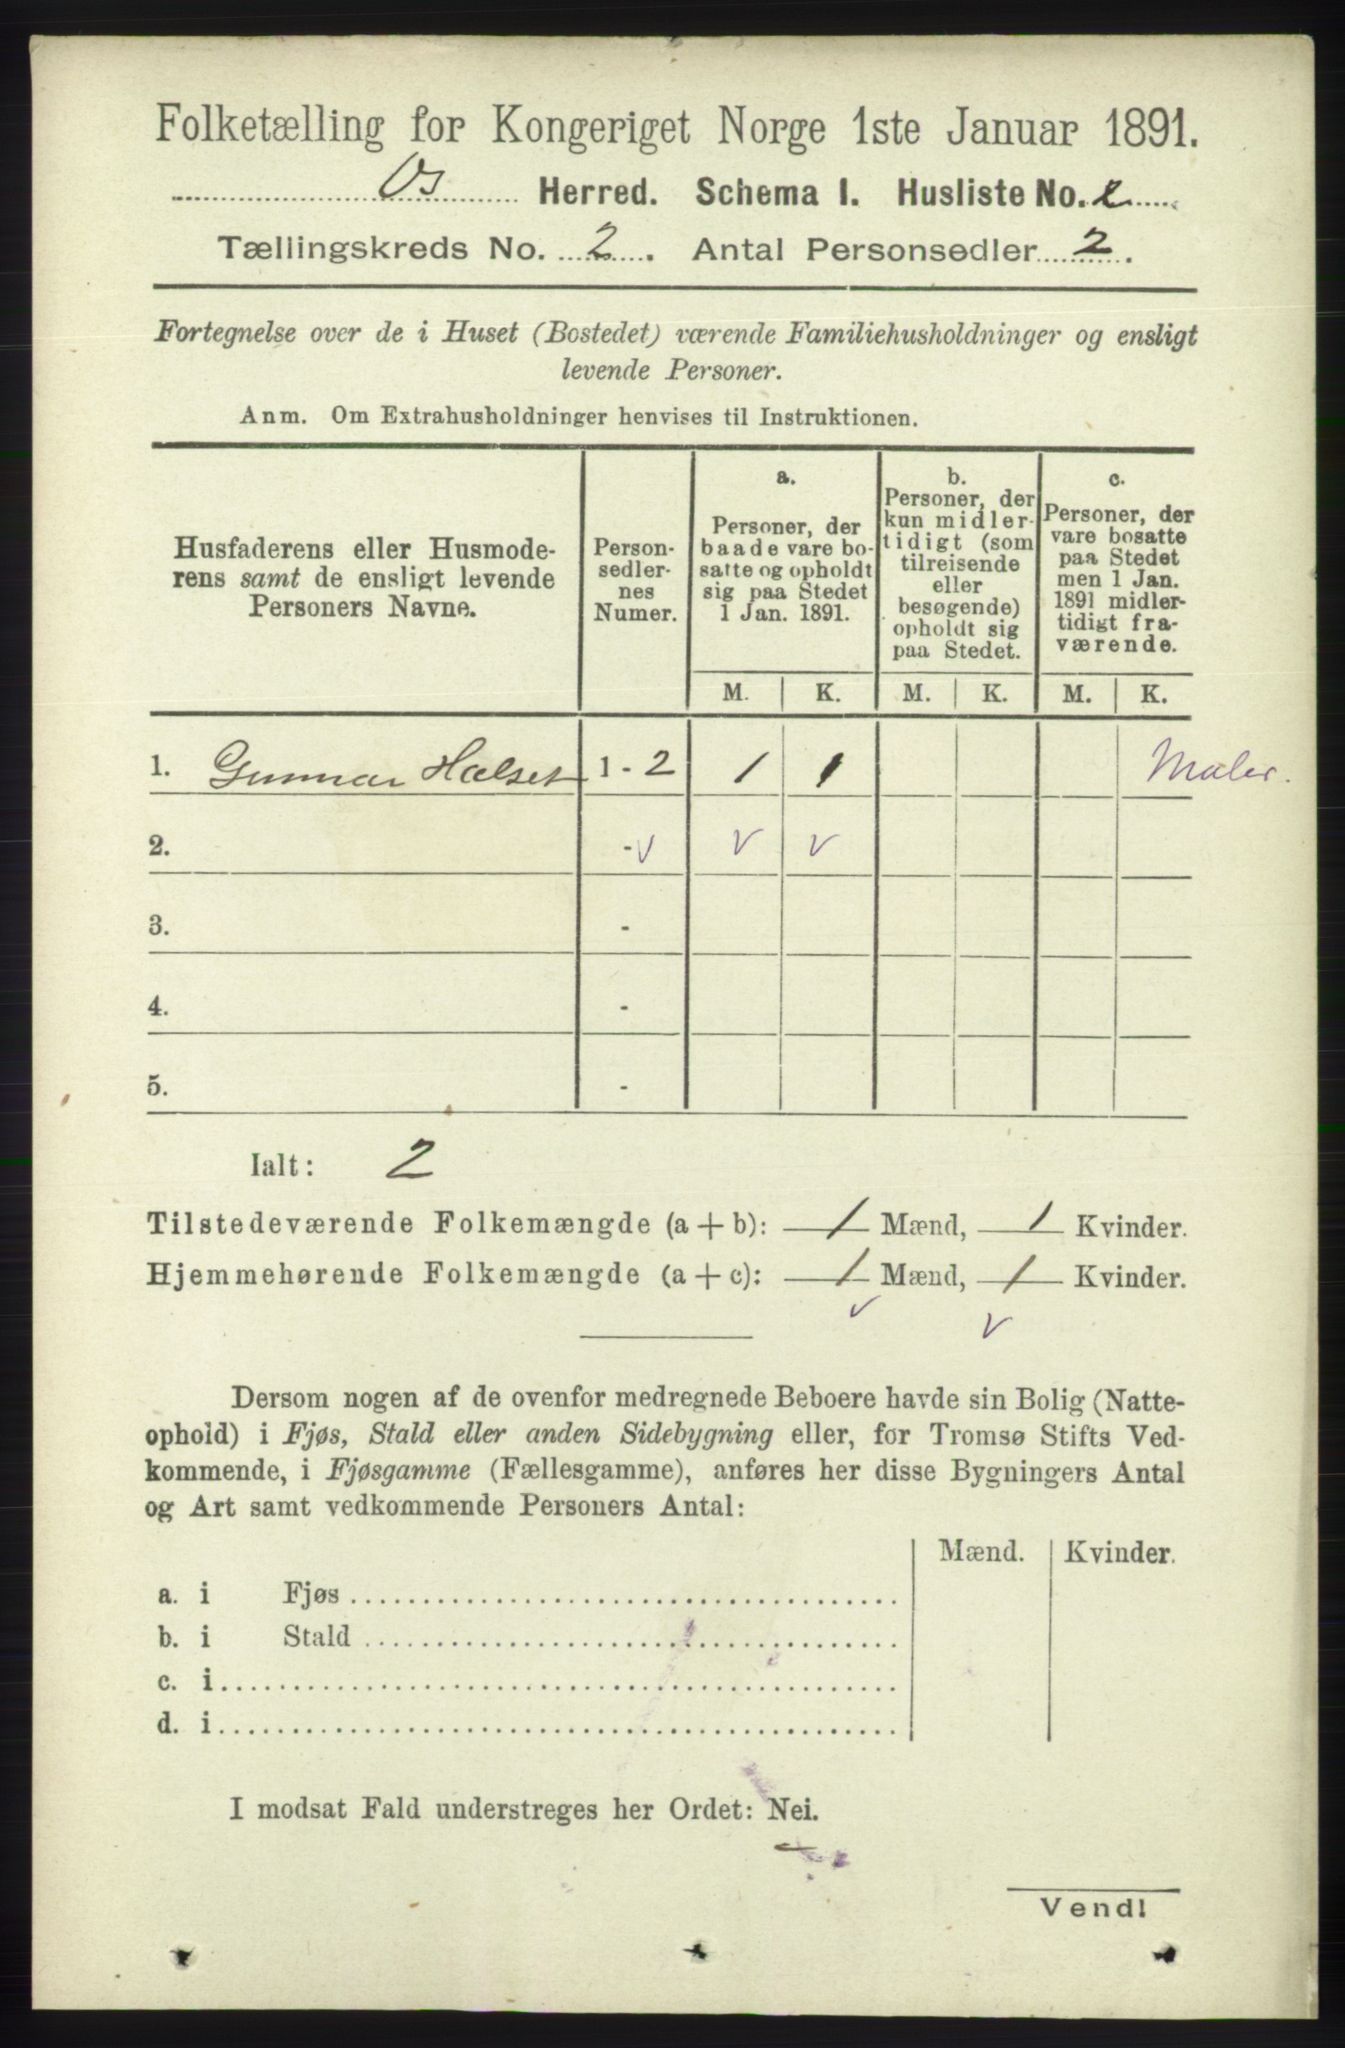 Folketælling for Kongeriget Norge 1ste Januar 1891.
Os Herred. Schema I. Husliste No.
Tællingskreds No. 2. Antal Personsedler 2.
Fortegnelse over de i Huset (Bostedet) værende Familiehusholdninger og ensligt
levende Personer.
Anm. Om Extrahusholdninger henvises til Instruktionen.
Husfaderens eller Husmode-
rens samt de ensligt levende
Personers Navne.
Person-
sedler-
nes
Numer.
a.
Personer, der
baade vare bo-
satte og opholdt
sig paa Stedet
1 Jan. 1891.
b.
Personer, der
kun midler-
tidigt (som
tilreisende
eller
besøgende)
opholdt sig
paa Stedet.
c.
Personer, der
vare bosatte
paa Stedet
men 1 Jan.
1891 midler-
tidigt fra-
værende.
M. K. M. K. M. K.
1. Gunnar Halset 1 - 2 1 1 Maler.
2. - v v v
3. -
4. -
5. -
Ialt: 2
Tilstedeværende Folkemængde (a + b): 1 Mænd, 1 Kvinder.
Hjemmehørende Folkemængde (a + c): 1 Mænd, 1 Kvinder.
v v
Dersom nogen af de ovenfor medregnede Beboere havde sin Bolig (Natte-
ophold) i Fjøs, Stald eller anden Sidebygning eller, for Tromsø Stifts Ved-
kommende, i Fjøsgamme (Fællesgamme), anføres her disse Bygningers Antal
og Art samt vedkommende Personers Antal:
Mænd. Kvinder.
a. i Fjøs
b. i Stald
c. i
d. i
I modsat Fald understreges her Ordet: Nei.
Vendl